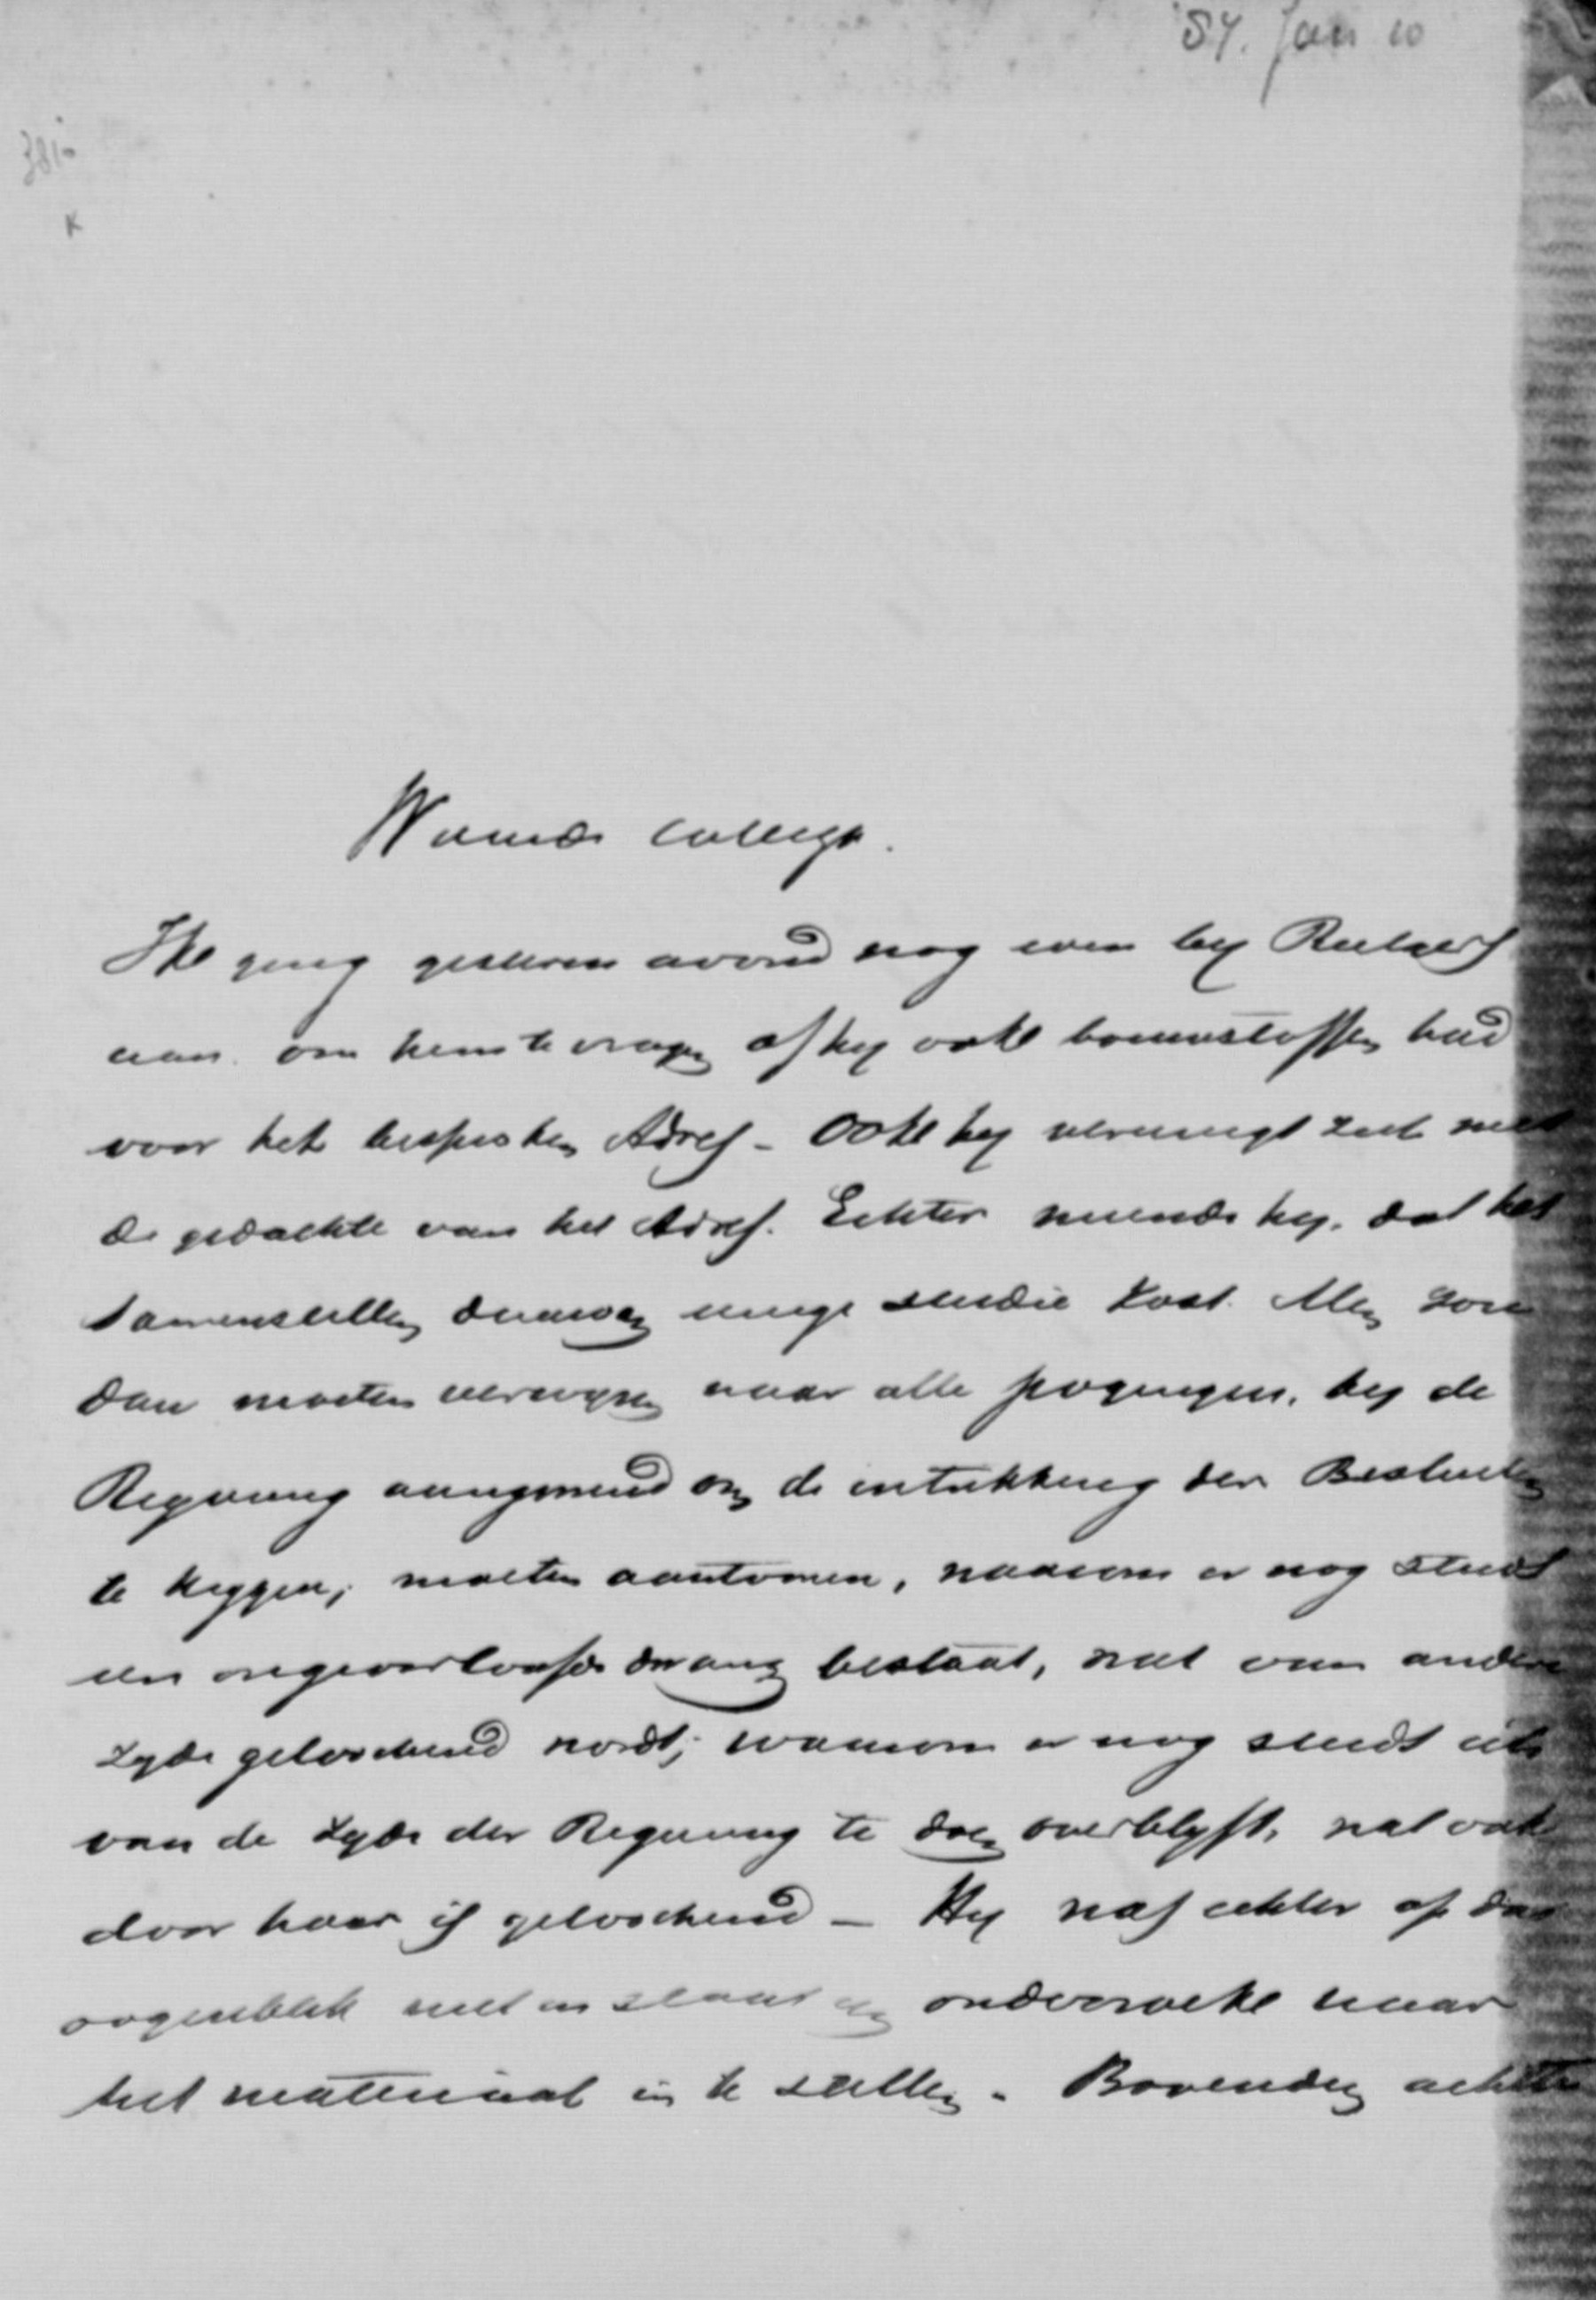 '54. Jan 10
381-
K
Waarde collega.
Ik ging gisteren avond nog even by Rutgers
aan om hem te vragen of hy ook bouwstoffen had
voor het besproken Adres - Ook hy vereenigt zich met
de gedachte van het Adres. Echter meende hy, dat het
samenstellen daarvan eenige studie kost. Men zou
dan moeten verwyzen naar alle pogingen, by de
Regering aangewend om de intrekking der Besluiten
te krygen; moeten aantoonen, waarom er nog steeds
een ongeoorloofde dwang bestaat, wat van andere
zyde geloochend wordt; waarom er nog steeds iets
van de zyde der Regering te doen overblyft, wat ook
door haar is geloochend - Hy was echter op dat
oogenblik niet in staat een onderzoek naar
het materiaal in te stellen. Bovendien achtte